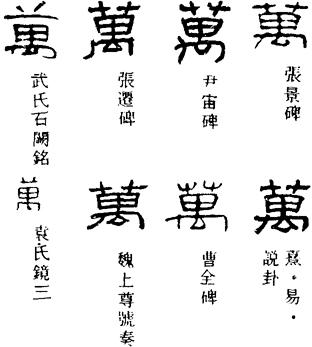 萬
張景碑
萬
尹宙碑
萬
張遷碑
萬
武氏石闕銘
萬
熹·易·
說卦
萬
曹全碑
萬
魏上尊號奏
萬
袁氏鏡三